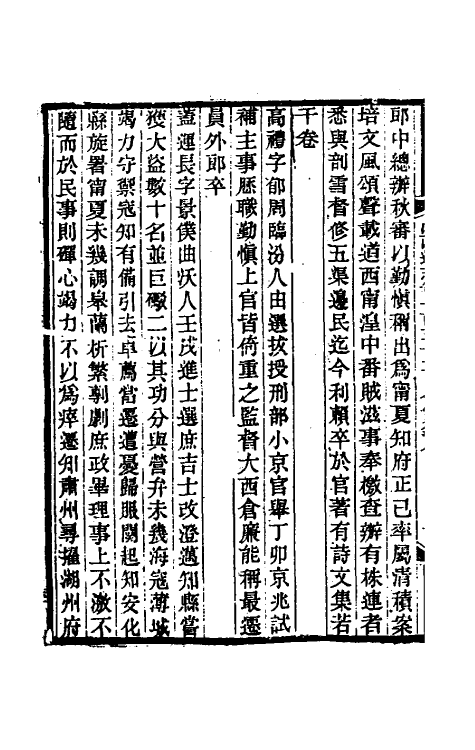 郎中總辦秋審以勤慎稱出爲甯夏知府正己率屬清積案
培文風頌聲載道西甯湟中番賊滋事奉檄查辦有株連者
悉與剖雪督修五渠邊民迄今利賴卒於官著有詩文集若
干卷
高禮字郁周臨汾人由選拔授刑部小京官舉丁卯京兆試
補主事歷職勤慎上官皆倚重之監督大西倉廉能稱最遷
員外郎卒
蓋運長字景僕曲沃人壬戌進士選庶吉士改澄邁知縣嘗
獲大盜數十名並巨礮二以其功分與營弁未幾海寇薄城
竭力守禦寇知有備引去卓薦當遷遭憂歸服闋起知安化
縣旋署甯夏未幾調皋蘭析繁剸劇庶政畢理事上不激不
隨而於民事則殫心竭力不以爲瘁遷知肅州尋擢湖州府